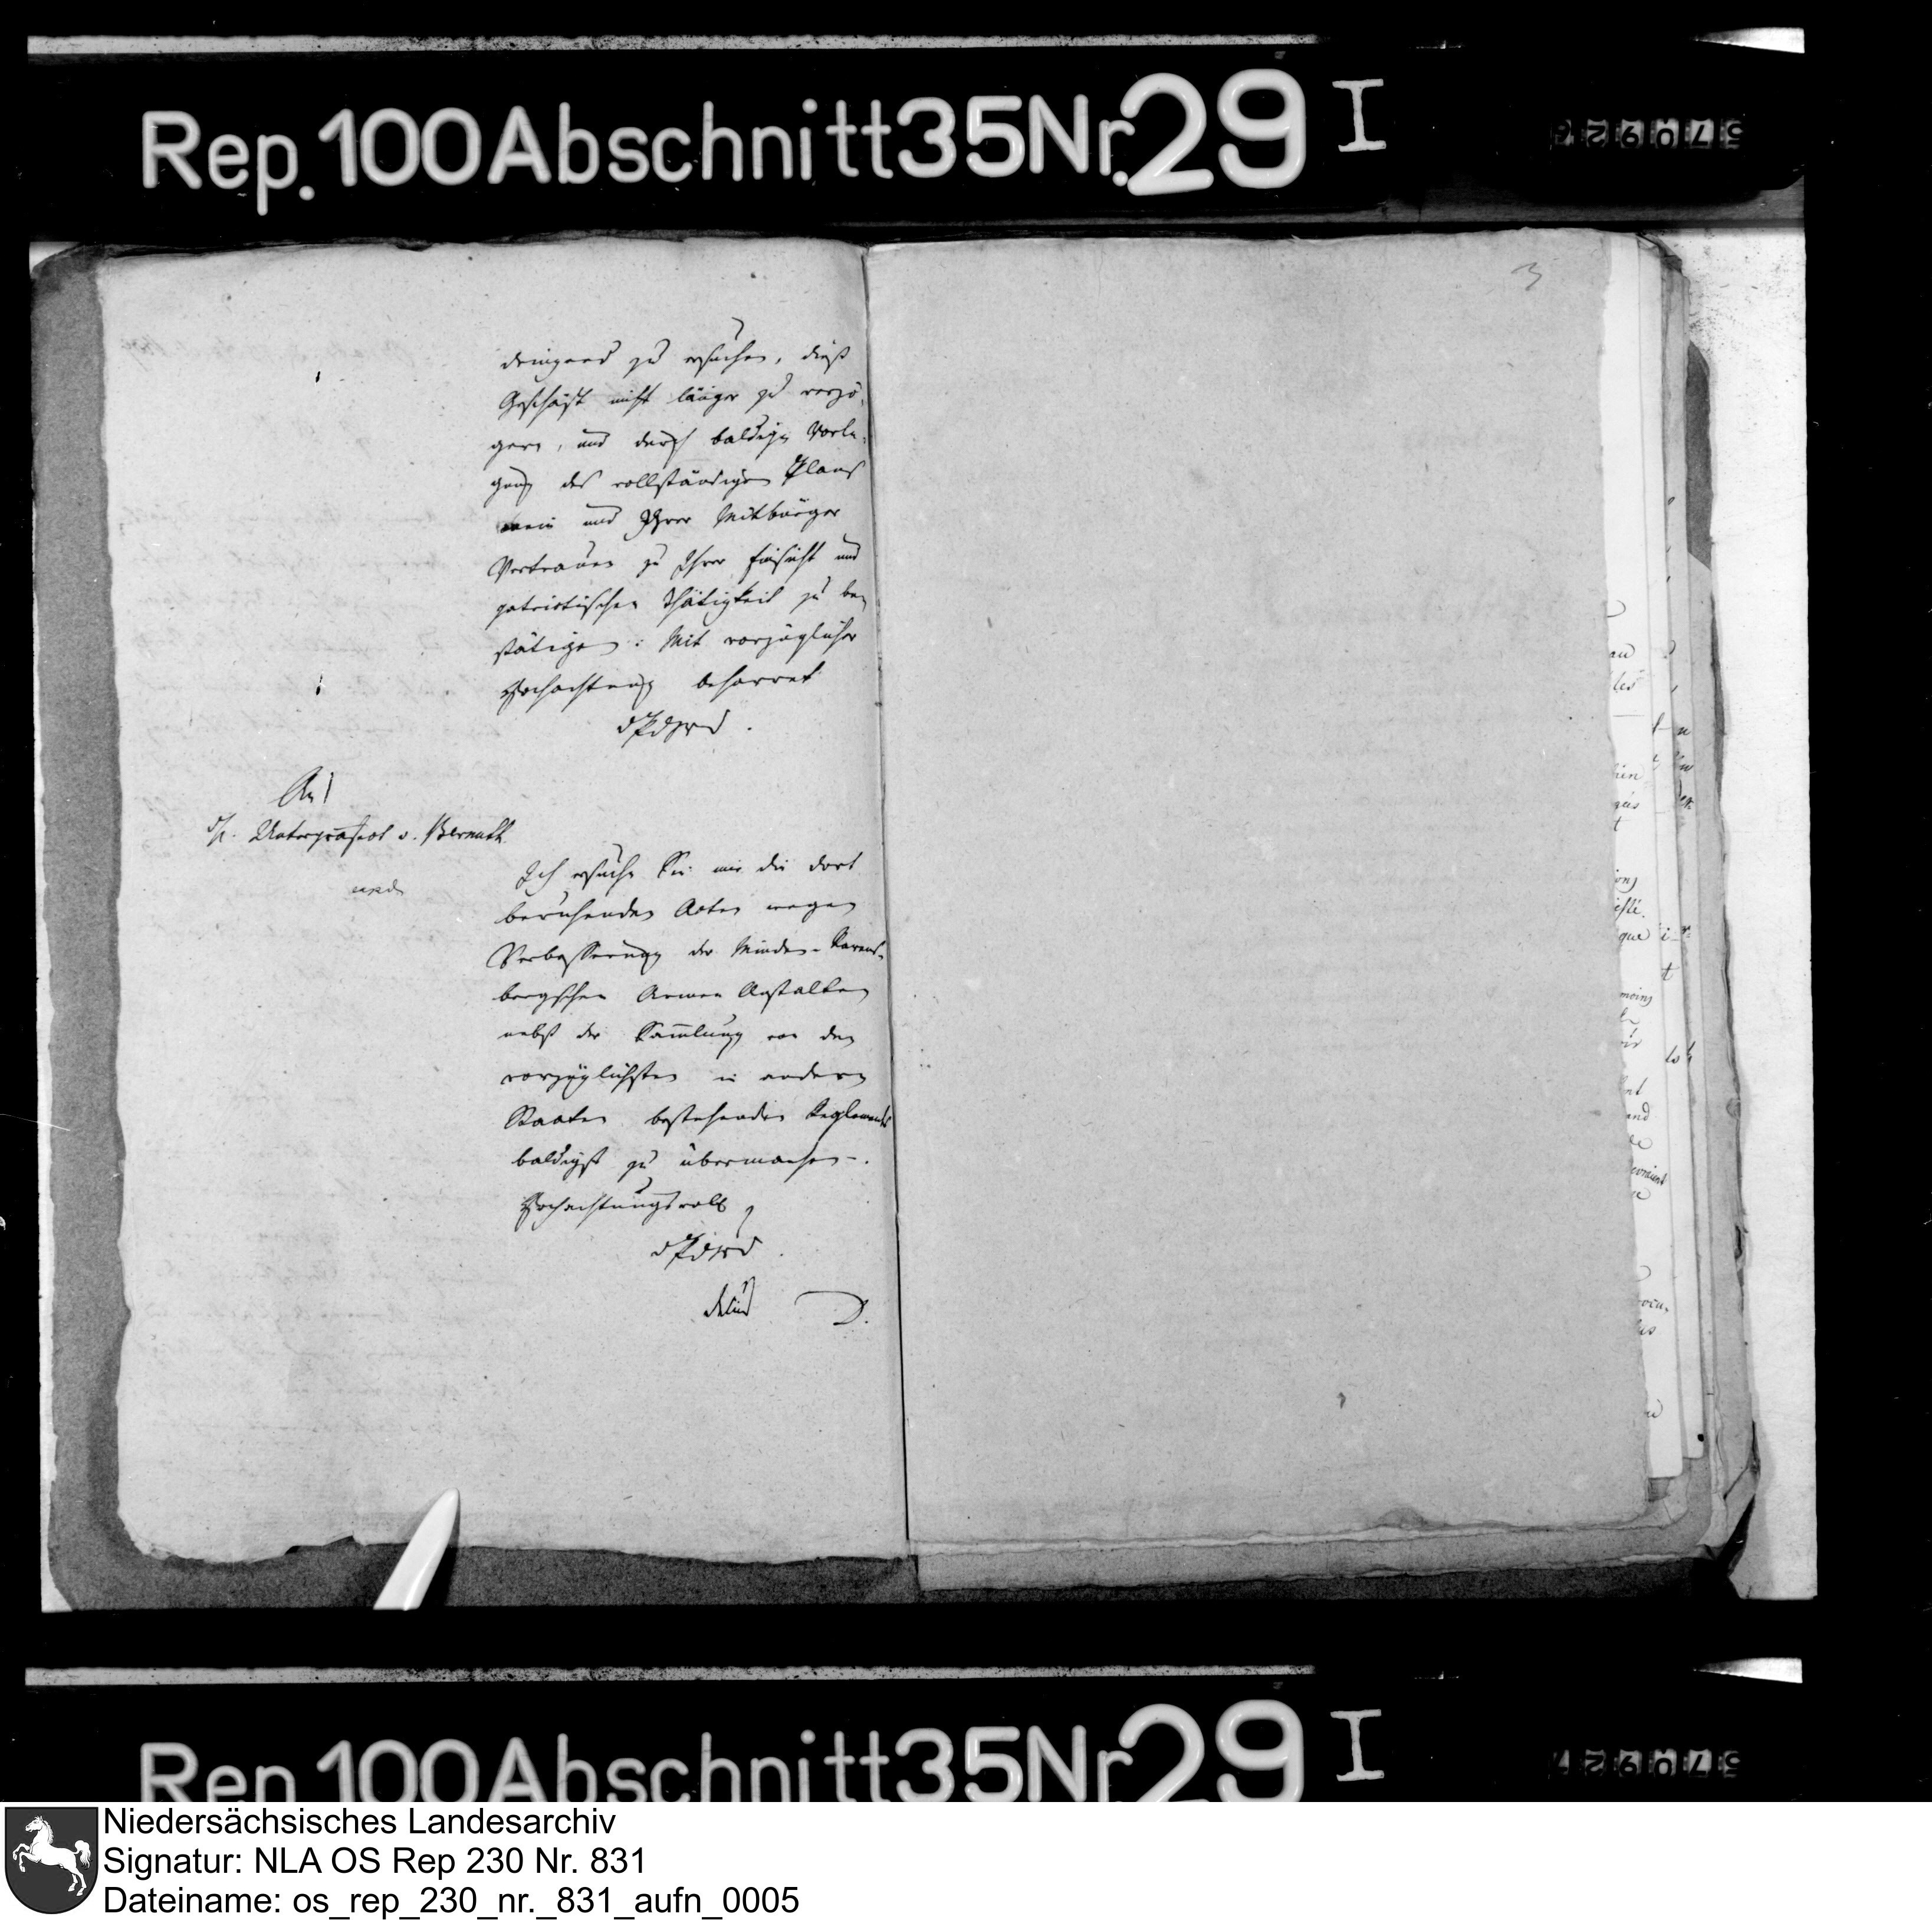 Rep. 100 Abschnitt 35 Nr. 29 I
570926
3
dringend zu ersuchen, dieß
Geschäft nicht länger zu verzö-
gern, und durch baldige Vorle-
gung des vollständigen Plans
mein und Ihrer Mitbürger
Vertrauen zu Ihrer Einsicht und
patriotischen Thätigkeit zu be-
stätigen. Mit vorzüglicher
Hochachtung beharret
An
H. Unterpräfect v. Bernuth
Ich ersuche Sie mir die dort
beruhenden Acten wegen
Verbesserung der Minden-Ravens-
bergschen Armen Anstalten
nebst der Sammlung von den
vorzüglichsten in andern
Staaten bestehenden Reglements
baldigst zu übermachen.
Hochachtungsvoll
D.
Rep. 100 Abschnitt 35 Nr. 29 I
570927
Niedersächsisches Landesarchiv
Signatur: NLA OS Rep 230 Nr. 831
Dateiname: os_rep_230_nr._831_aufn_0005